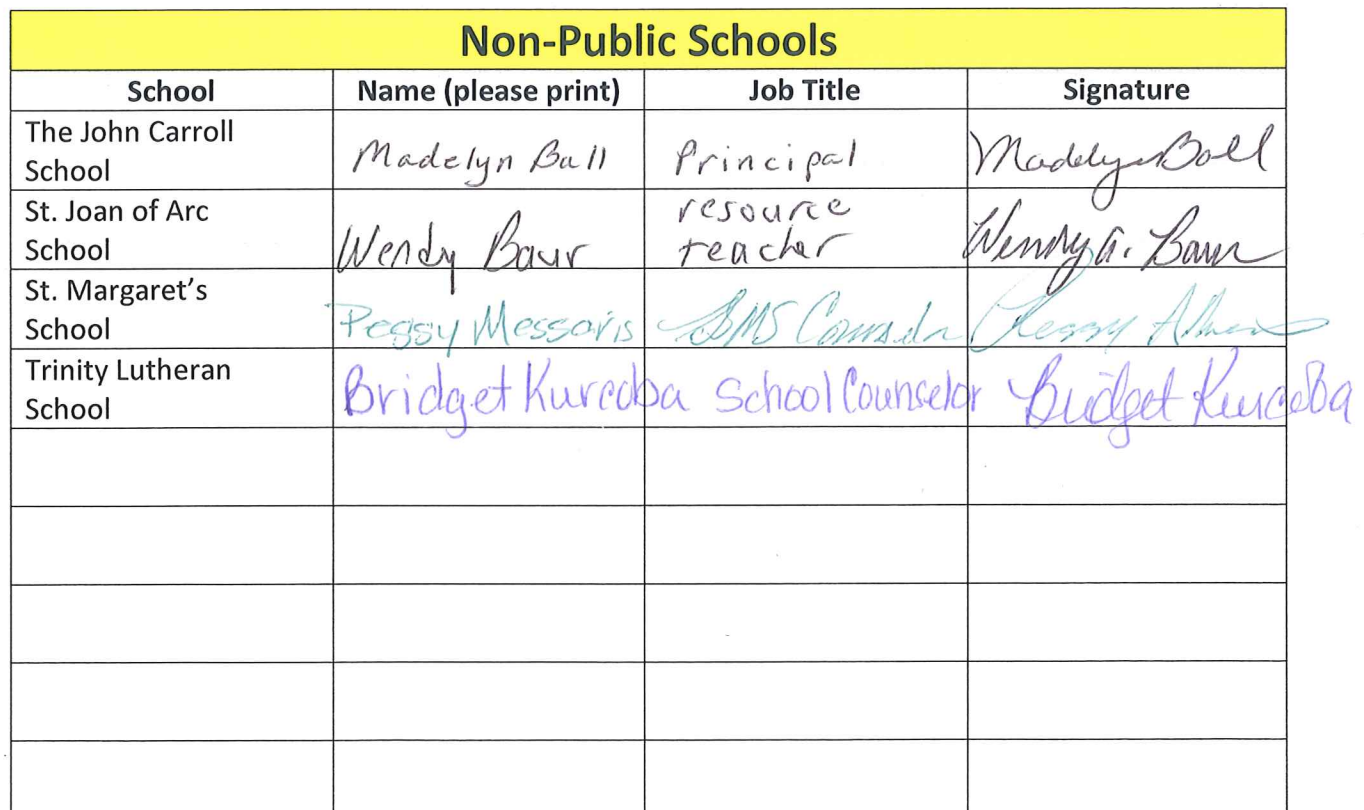 Non-Public Schools
School Name (please print) Job Title Signature
The John Carroll
School Madelyn Ball Principal Madelyn Ball
St. Joan of Arc
School Wendy Baur resource
teacher Wendy A. Baur
St. Margaret's
School Peggy Messaris
Trinity Lutheran
School Bridget Kurcoba School Counselor Bridget Kurcoba